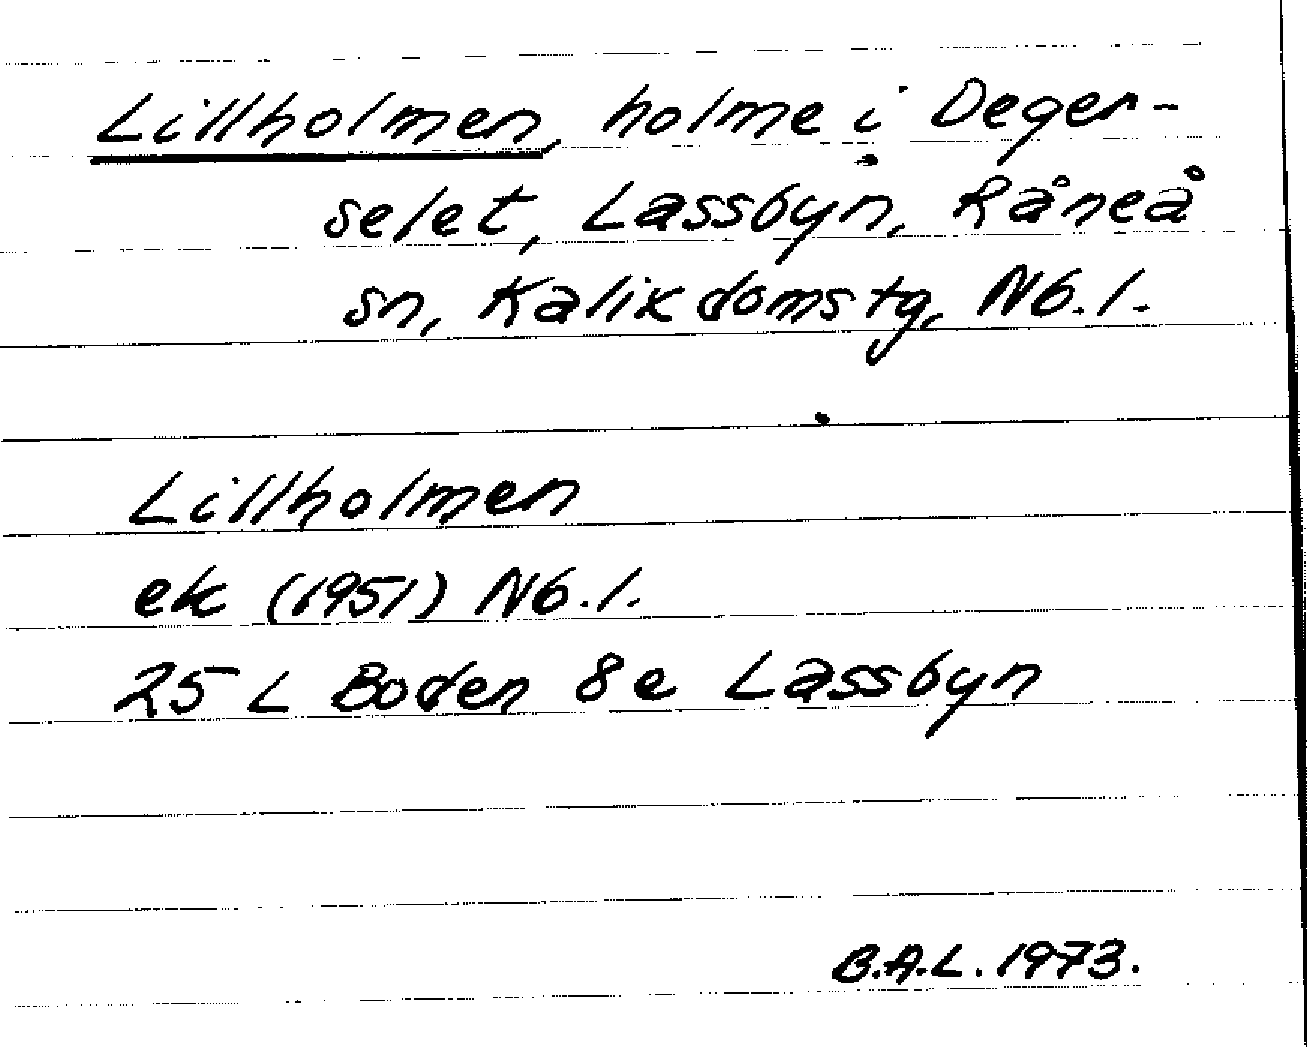 Lillholmen, holme i Deger-
selet, Lassbyn, Råneå
sn, Kalix domstg, Nb.l.
Lillholmen
ek (1951) Nb.l.
25 L Boden 8e Lassbyn
B.A.L. 1973.